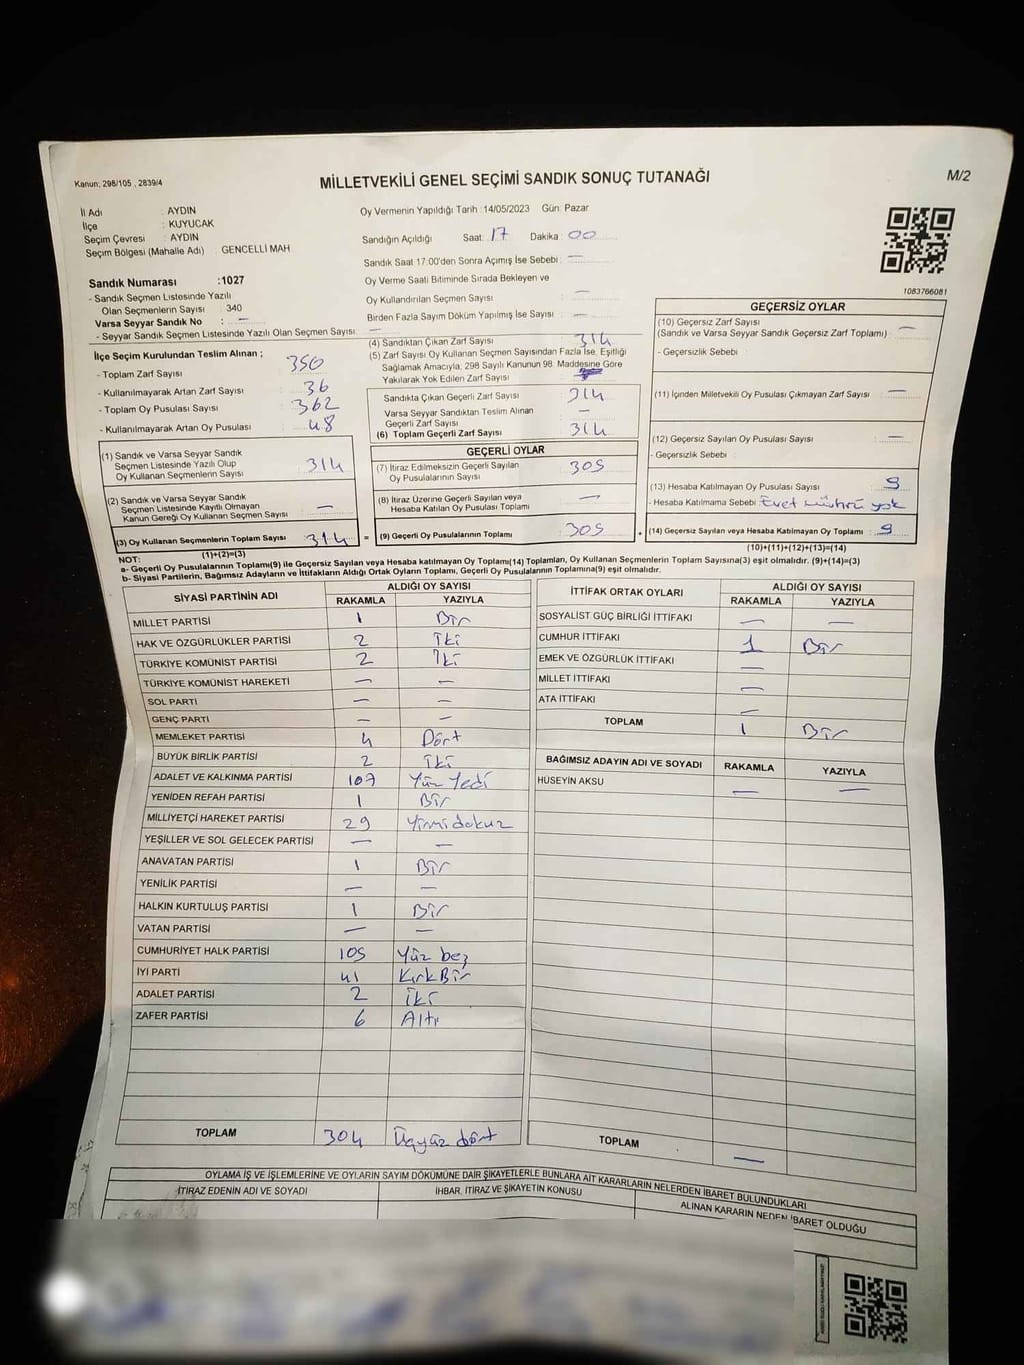 Kanun; 298/105 , 2839/4
MİLLETVEKİLİ GENEL SEÇİMİ SANDIK SONUÇ TUTANAĞI
M/2
İl Adı : AYDIN
İlçe : KUYUCAK
Seçim Çevresi : AYDIN
Seçim Bölgesi (Mahalle Adı) : GENCELLİ MAH
Oy Vermenin Yapıldığı Tarih :14/05/2023 Gün: Pazar
Sandığın Açıldığı Saat: 17 Dakika : 00
Sandık Saat 17:00'den Sonra Açımış İse Sebebi : —
Oy Verme Saati Bitiminde Sırada Bekleyen ve
Oy Kullandırılan Seçmen Sayısı : —
Birden Fazla Sayım Döküm Yapılmış İse Sayısı : —
1083766081
Sandık Numarası :1027
- Sandık Seçmen Listesinde Yazılı
Olan Seçmenlerin Sayısı : 340
Varsa Seyyar Sandık No : —
- Seyyar Sandık Seçmen Listesinde Yazılı Olan Seçmen Sayısı : —
İlçe Seçim Kurulundan Teslim Alınan ;
- Toplam Zarf Sayısı : 350
- Kullanılmayarak Artan Zarf Sayısı : 36
- Toplam Oy Pusulası Sayısı : 362
- Kullanılmayarak Artan Oy Pusulası : 48
(1) Sandık ve Varsa Seyyar Sandık
Seçmen Listesinde Yazılı Olup
Oy Kullanan Seçmenlerin Sayısı : 314
(2) Sandık ve Varsa Seyyar Sandık
Seçmen Listesinde Kayıtlı Olmayan
Kanun Gereği Oy Kullanan Seçmen Sayısı : —
(3) Oy Kullanan Seçmenlerin Toplam Sayısı : 314
(1)+(2)=(3)
(4) Sandıktan Çıkan Zarf Sayısı : 314
(5) Zarf Sayısı Oy Kullanan Seçmen Sayısından Fazla İse, Eşitliği
Sağlamak Amacıyla, 298 Sayılı Kanunun 98. Maddesine Göre
Yakılarak Yok Edilen Zarf Sayısı :
Sandıkta Çıkan Geçerli Zarf Sayısı : 314
Varsa Seyyar Sandıktan Teslim Alınan
Geçerli Zarf Sayısı : —
(6) Toplam Geçerli Zarf Sayısı : 314
GEÇERLİ OYLAR
(7) İtiraz Edilmeksizin Geçerli Sayılan
Oy Pusulalarının Sayısı : 305
(8) İtiraz Üzerine Geçerli Sayılan veya
Hesaba Katılan Oy Pusulaları Toplamı : —
= (9) Geçerli Oy Pusulalarının Toplamı : 305
GEÇERSİZ OYLAR
(10) Geçersiz Zarf Sayısı : —
(Sandık ve Varsa Seyyar Sandık Geçersiz Zarf Toplamı)
- Geçersizlik Sebebi
(11) İçinden Milletvekili Oy Pusulası Çıkmayan Zarf Sayısı : —
(12) Geçersiz Sayılan Oy Pusulası Sayısı : —
- Geçersizlik Sebebi :
(13) Hesaba Katılmayan Oy Pusulası Sayısı : 9
- Hesaba Katılmama Sebebi : Evet mührü yok
+ (14) Geçersiz Sayılan veya Hesaba Katılmayan Oy Toplamı : 9
(10)+(11)+(12)+(13)=(14)
NOT:
a- Geçerli Oy Pusulalarının Toplamı(9) ile Geçersiz Sayılan veya Hesaba katılmayan Oy Toplamı(14) Toplamları, Oy Kullanan Seçmenlerin Toplam Sayısına(3) eşit olmalıdır. (9)+(14)=(3)
b- Siyasi Partilerin, Bağımsız Adayların ve İttifakların Aldığı Ortak Oyların Toplamı, Geçerli Oy Pusulalarının Toplamına(9) eşit olmalıdır.
SİYASİ PARTİNİN ADI ALDIĞI OY SAYISI
RAKAMLA YAZIYLA
MİLLET PARTİSİ 1 Bir
HAK VE ÖZGÜRLÜKLER PARTİSİ 2 İki
TÜRKİYE KOMÜNİST PARTİSİ 2 İki
TÜRKİYE KOMÜNİST HAREKETİ — —
SOL PARTİ — —
GENÇ PARTİ — —
MEMLEKET PARTİSİ 4 Dört
BÜYÜK BİRLİK PARTİSİ 2 İki
ADALET VE KALKINMA PARTİSİ 107 Yüz Yedi
YENİDEN REFAH PARTİSİ 1 Bir
MİLLİYETÇİ HAREKET PARTİSİ 29 Yirmi dokuz
YEŞİLLER VE SOL GELECEK PARTİSİ — —
ANAVATAN PARTİSİ 1 Bir
YENİLİK PARTİSİ — —
HALKIN KURTULUŞ PARTİSİ 1 Bir
VATAN PARTİSİ — —
CUMHURİYET HALK PARTİSİ 105 Yüz beş
İYİ PARTİ 41 Kırk Bir
ADALET PARTİSİ 2 İki
ZAFER PARTİSİ 6 Altı
TOPLAM 304 Üçyüz dört
İTTİFAK ORTAK OYLARI ALDIĞI OY SAYISI
RAKAMLA YAZIYLA
SOSYALİST GÜÇ BİRLİĞİ İTTİFAKI — —
CUMHUR İTTİFAKI 1 Bir
EMEK VE ÖZGÜRLÜK İTTİFAKI —
MİLLET İTTİFAKI —
ATA İTTİFAKI —
TOPLAM 1 Bir
BAĞIMSIZ ADAYIN ADI VE SOYADI RAKAMLA YAZIYLA
HÜSEYİN AKSU — —
TOPLAM —
OYLAMA İŞ VE İŞLEMLERİNE VE OYLARIN SAYIM DÖKÜMÜNE DAİR ŞİKAYETLERLE BUNLARA AİT KARARLARIN NELERDEN İBARET BULUNDUKLARI
İTİRAZ EDENİN ADI VE SOYADI İHBAR, İTİRAZ VE ŞİKAYETİN KONUSU ALINAN KARARIN NEDEN İBARET OLDUĞU